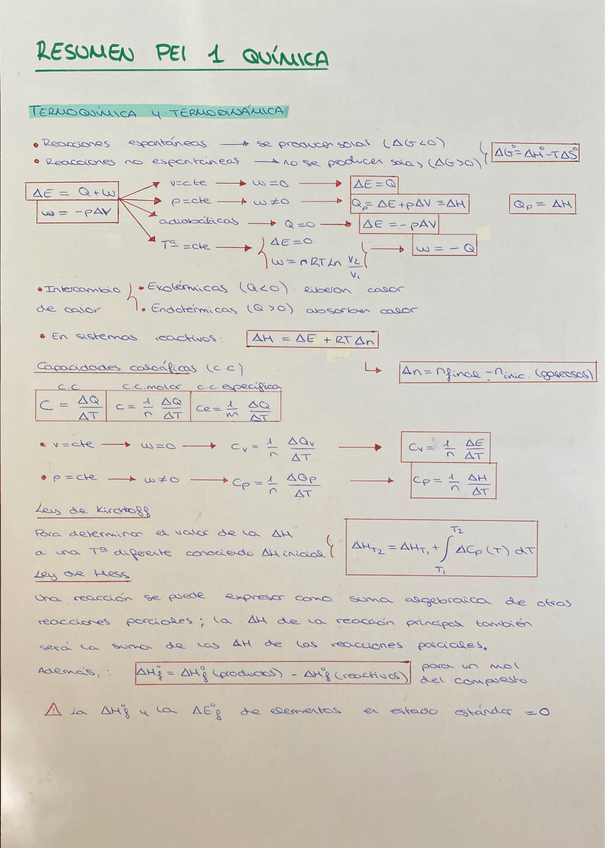 RESUMEN PEI 1 QUÍMICA
TERMOQUÍMICA Y TERMODINÁMICA
• Reacciones espontáneas → se producen solas (ΔG<0)
• Reacciones no espontáneas → no se producen solas (ΔG>0)
ΔG° = ΔH° - TΔS°
ΔE = Q + w
w = -pΔV
v=cte → w=0 → ΔE=Q
p=cte → w≠0 → Qp = ΔE + pΔV = ΔH
Qp = ΔH
adiabáticas → Q=0 → ΔE = -pΔV
Tª=cte → { ΔE=0
w = nRT Ln V2/V1 } → w = -Q
• Intercambio de calor
• Exotérmicas (Q<0) liberan calor
• Endotérmicas (Q>0) absorben calor
• En sistemas reactivos: ΔH = ΔE + RTΔn
Δn = nfinal - ninic. (gaseosos)
Capacidades caloríficas (c.c)
c.c c.c. molar c.c específica
C = ΔQ/ΔT c = 1/n ΔQ/ΔT Ce = 1/m ΔQ/ΔT
• v=cte → w=0 → Cv = 1/n ΔQv/ΔT → Cv = 1/n ΔE/ΔT
• p=cte → w≠0 → Cp = 1/n ΔQp/ΔT → Cp = 1/n ΔH/ΔT
Ley de Kirchoff
Para determinar el valor de la ΔH
a una Tª diferente conociendo ΔH inicial
ΔHT2 = ΔHT1 + ∫T1T2 ΔCp(T) dT
Ley de Hess
Una reacción se puede expresar como suma algebraica de otras
reacciones parciales; la ΔH de la reacción principal también
será la suma de las ΔH de las reacciones parciales.
Además,: ΔH°f = ΔH°f (productos) - ΔH°f (reactivos) para un mol
del compuesto
⚠ La ΔH°f y la ΔE°f de elementos en estado estándar = 0